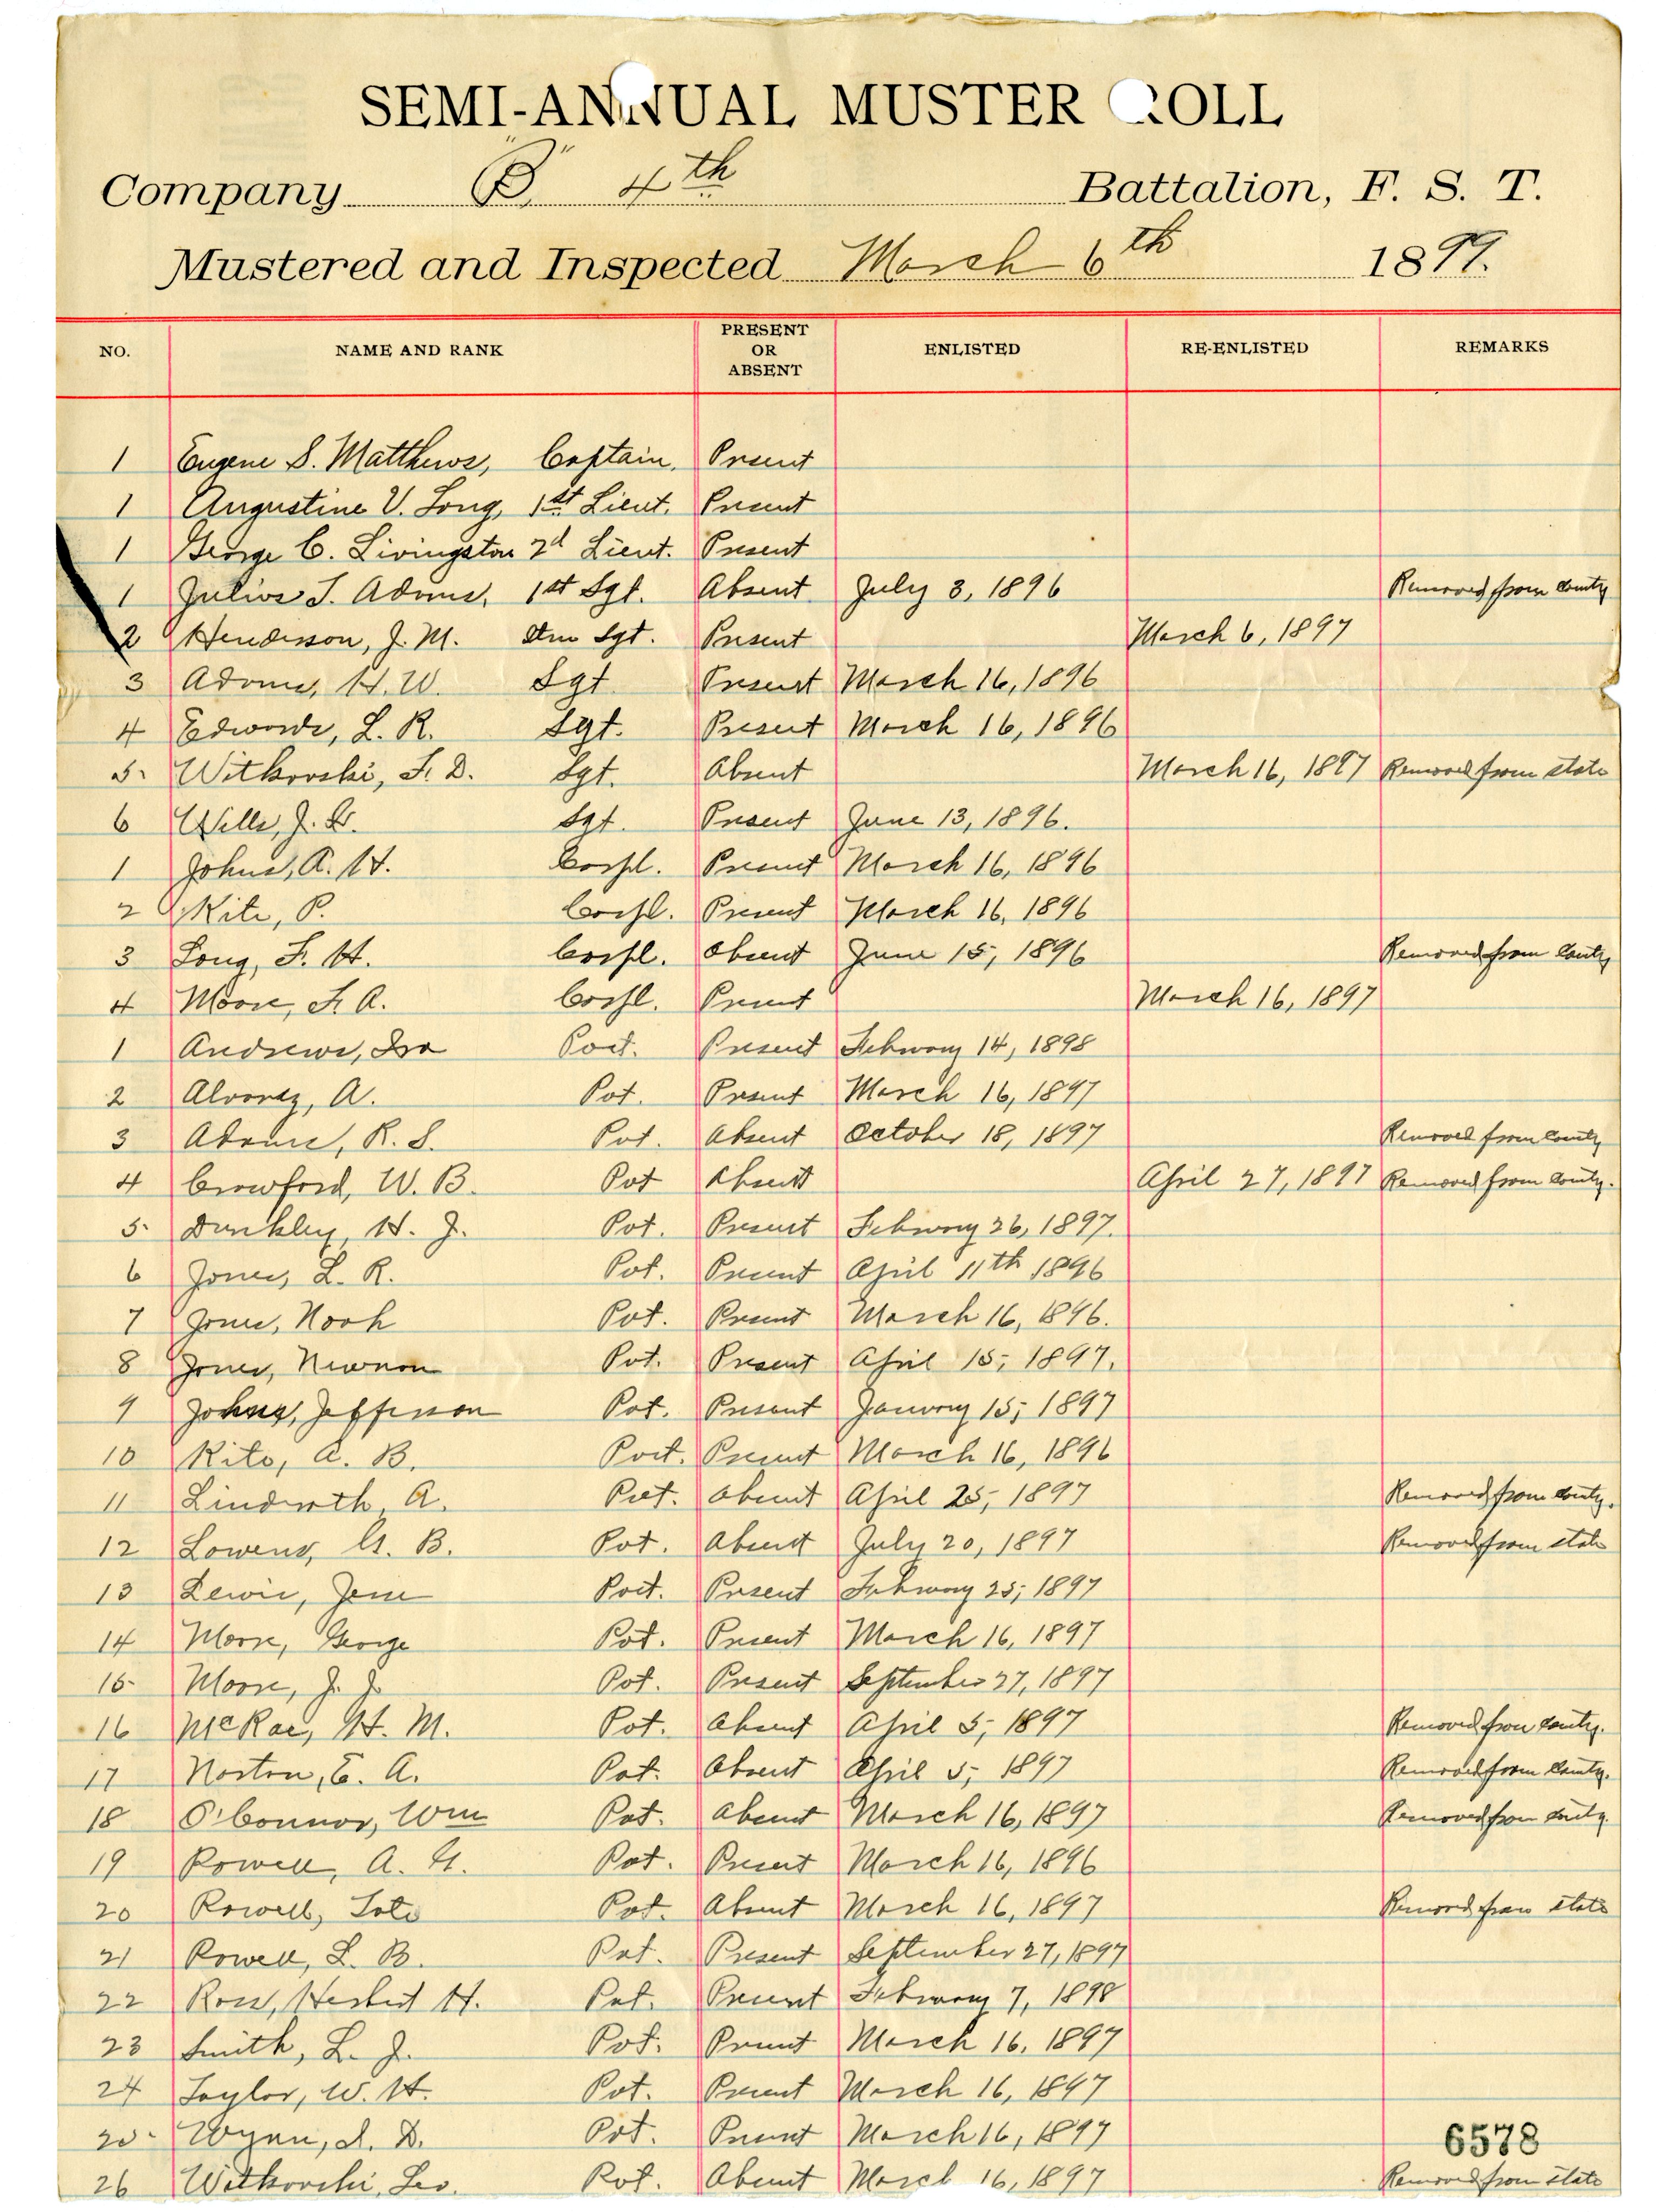 SEMI-ANNUAL MUSTER ROLL
Company "B" 4th Battalion, F. S. T.
Mustered and Inspected March 6th 1899.
NO. NAME AND RANK PRESENT OR ABSENT ENLISTED RE-ENLISTED REMARKS
1 Eugene S. Matthews, Captain. Present
1 Augustine V. Long, 1st Lieut. Present
1 George C. Livingston 2d Lieut. Present
1 Julius J. Adams, 1st Sgt. Absent July 3, 1896 Removed from County
2 Henderson, J. M. Sgt. Present March 6, 1897
3 Adams, H. W. Sgt Present March 16, 1896
4 Edwards, L. R. Sgt. Present March 16, 1896
5. Witkovski, F. D. Sgt. Absent March 16, 1897 Removed from state
6 Wills, J. Sgt. Present June 13, 1896.
1 Johns, A. H. Corpl. Present March 16, 1896
2 Kite, P. Corpl. Present March 16, 1896
3 Long, F. H. Corpl. Absent June 15, 1896 Removed from County
4 Moore, F. A. Corpl. Present March 16, 1897
1 Andrews, Ira Pvt. Present February 14, 1898
2 Alvarez, A. Pvt. Present March 16, 1897
3 Adams, R. S. Pvt. Absent October 18, 1897 Removed from County
4 Crawford, W. B. Pvt Absent April 27, 1897 Removed from County.
5. Dunkley, H. J. Pvt. Present February 26, 1897.
6 Jones, L. R. Pvt. Present April 11th 1896
7 Jones, Noah Pvt. Present March 16, 1896.
8 Jones, Newnon Pvt. Present April 15, 1897.
9 Johns, Jefferson Pvt. Present January 15, 1897
10 Kite, A. B. Pvt. Present March 16, 1896
11 Lindroth, A. Pvt. Absent April 25, 1897 Removed from County.
12 Lowens, G. B. Pvt. Absent July 20, 1897 Removed from state
13 Lewis, Jesse Pvt. Present February 25, 1897
14 Moore, George Pvt. Present March 16, 1897
15 Moore, J. J. Pvt. Present September 27, 1897
16 McRae, H. M. Pvt. Absent April 5, 1897 Removed from County.
17 Norton, E. A. Pvt. Absent April 5, 1897 Removed from County.
18 O'Connor, Wm Pvt. Absent March 16, 1897 Removed from County.
19 Powell, A. G. Pvt. Present March 16, 1896
20 Rowell, Pvt. Absent March 16, 1897 Removed from state
21 Powell, L. B. Pvt. Present September 27, 1897
22 Ross, Herbert H. Pvt. Present February 7, 1898
23 Smith, L. J. Pvt. Present March 16, 1897
24 Taylor, W. H. Pvt. Present March 16, 1897
25 Wynn, D. Pvt. Present March 16, 1897
6578
26 Witkovski, Leo. Pvt. Absent March 16, 1897 Removed from state